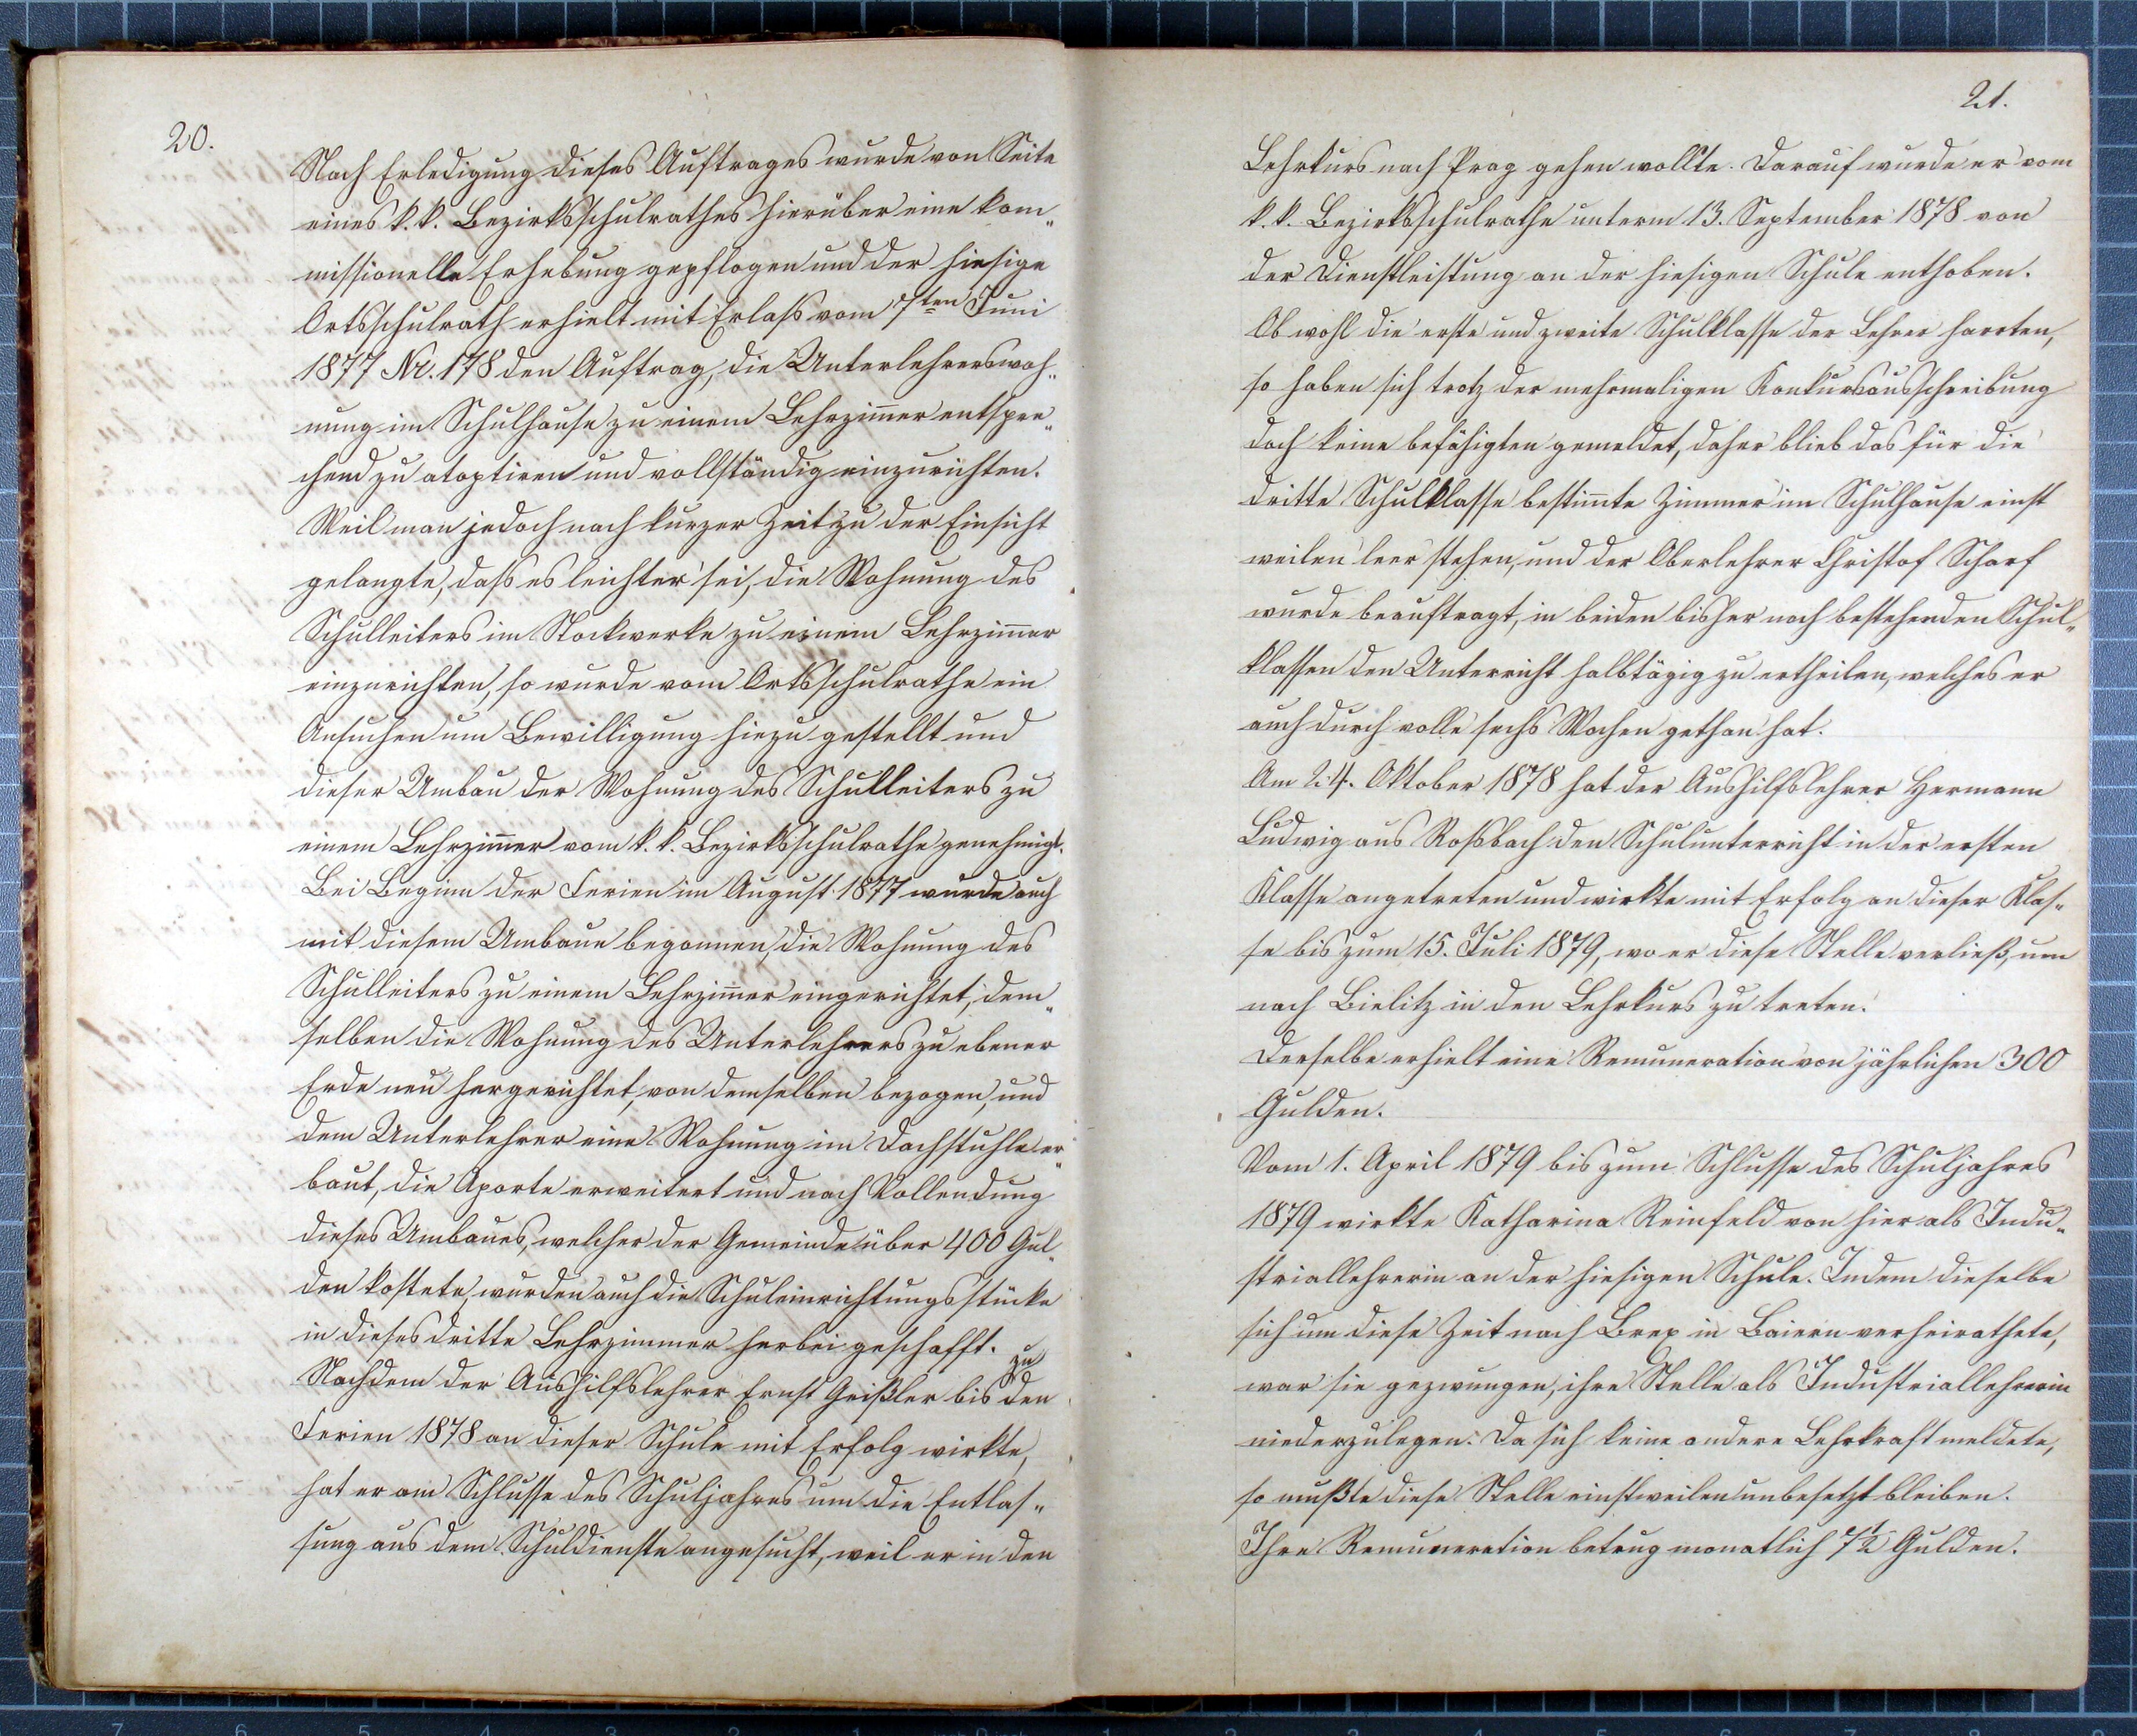 20.
Nach Erledigung dieses Auftrages wurde von Seite
eines k. k. Bezirksschulrathes hierüber eine kom„
missionelle Erhebung gepflogen und der hiesige
Ortsschulrath erhielt mit Erlaß vom 7ten Juni
1877 Nr. 178 den Auftrag, die Unterlehrerswoh„
nung im Schulhause zu einem Lehrzim̅er entspre„
chend zu atoptiren und vollständig einzurichten.
Weil man jedoch nach kurzer Zeit zu der Einsicht
gelangte, daß es leichter sei, die Wohnung des
Schulleiters im Stockwerke zu einem Lehrzim̅er
einzurichten, so wurde vom Ortsschulrathe ein
Ansuchen um Bewilligung hiezu gestellt und
dieser Umbau der Wohnung des Schulleiters zu
einem Lehrzim̅er vom k. k. Bezirksschulrathe genehmigt.
Bei Beginn der Ferien im August 1877 wurde auch
mit diesem Umbaue begonnen, die Wohnung des
Schulleiters zu einem Lehrzim̅er eingerichtet, dem„
selben die Wohnung des Unterlehrers zu ebener
Erde neu hergerichtet, von demselben bezogen, und
dem Unterlehrer eine Wohnung im Dachstuhle er„
baut, die Aporte erweitert und nach Vollendung
dieses Umbaues, welcher der Gemeinde über 400 Gul„
den kostete, wurden auch die Schuleinrichtungsstücke
in dieses dritte Lehrzimmer herbei geschafft.
Nachdem der Aushilfslehrer Ernst Geißler bis zu den
Ferien 1878 an dieser Schule mit Erfolg wirkte,
hat er am Schlusse des Schuljahres um die Entlas„
sung aus dem Schuldienste angesucht, weil er in den
21.
Lehrkurs nach Prag gehen wollte. Darauf wurde er vom
k. k. Bezirksschulrathe unterm 13. September 1878 von
der Dienstleistung an der hiesigen Schule enthoben.
Ob wohl die erste und zweite Schulklasse der Lehrer harrten,
so haben sich trotz der mehrmaligen Konkursausschreibung
doch keine befähigten gemeldet, daher blieb das für die
dritte Schulklasse bestim̅te Zimmer im Schulhause einst
weilen leer stehen, und der Oberlehrer Christof Scharf
wurde beauftragt, in beiden bisher noch bestehenden Schul„
klassen den Unterricht halbtägig zu ertheilen, welches er
auch durch volle sechs Wochen gethan hat.
Am 24. Oktober 1878 hat der Aushilfslehrer Hermann
Ludwig aus Roßbach den Schulunterricht in der ersten
Klasse angetreten und wirkte mit Erfolg an dieser Klas„
se bis zum 15. Juli 1879, wo er diese Stelle verließ, um
nach Bielitz in den Lehrkurs zu treten.
Derselbe erhielt eine Remuneration von jährlichen 300
Gulden.
Vom 1. April 1879 bis zum Schlusse des Schuljahres
1879 wirkte Katharina Reinfeld von hier als Indu„
striallehrerin an der hiesigen Schule. Indem dieselbe
sich um diese Zeit nach Brex in Baiern verheirathete,
war sie gezwungen, ihre Stelle als Industriallehrerin
niederzulegen. Da sich keine andere Lehrkraft meldete,
so mußte diese Stelle einstweilen unbesetzt bleiben.
Ihre Remuneration betrug monatlich 7½ Gulden.